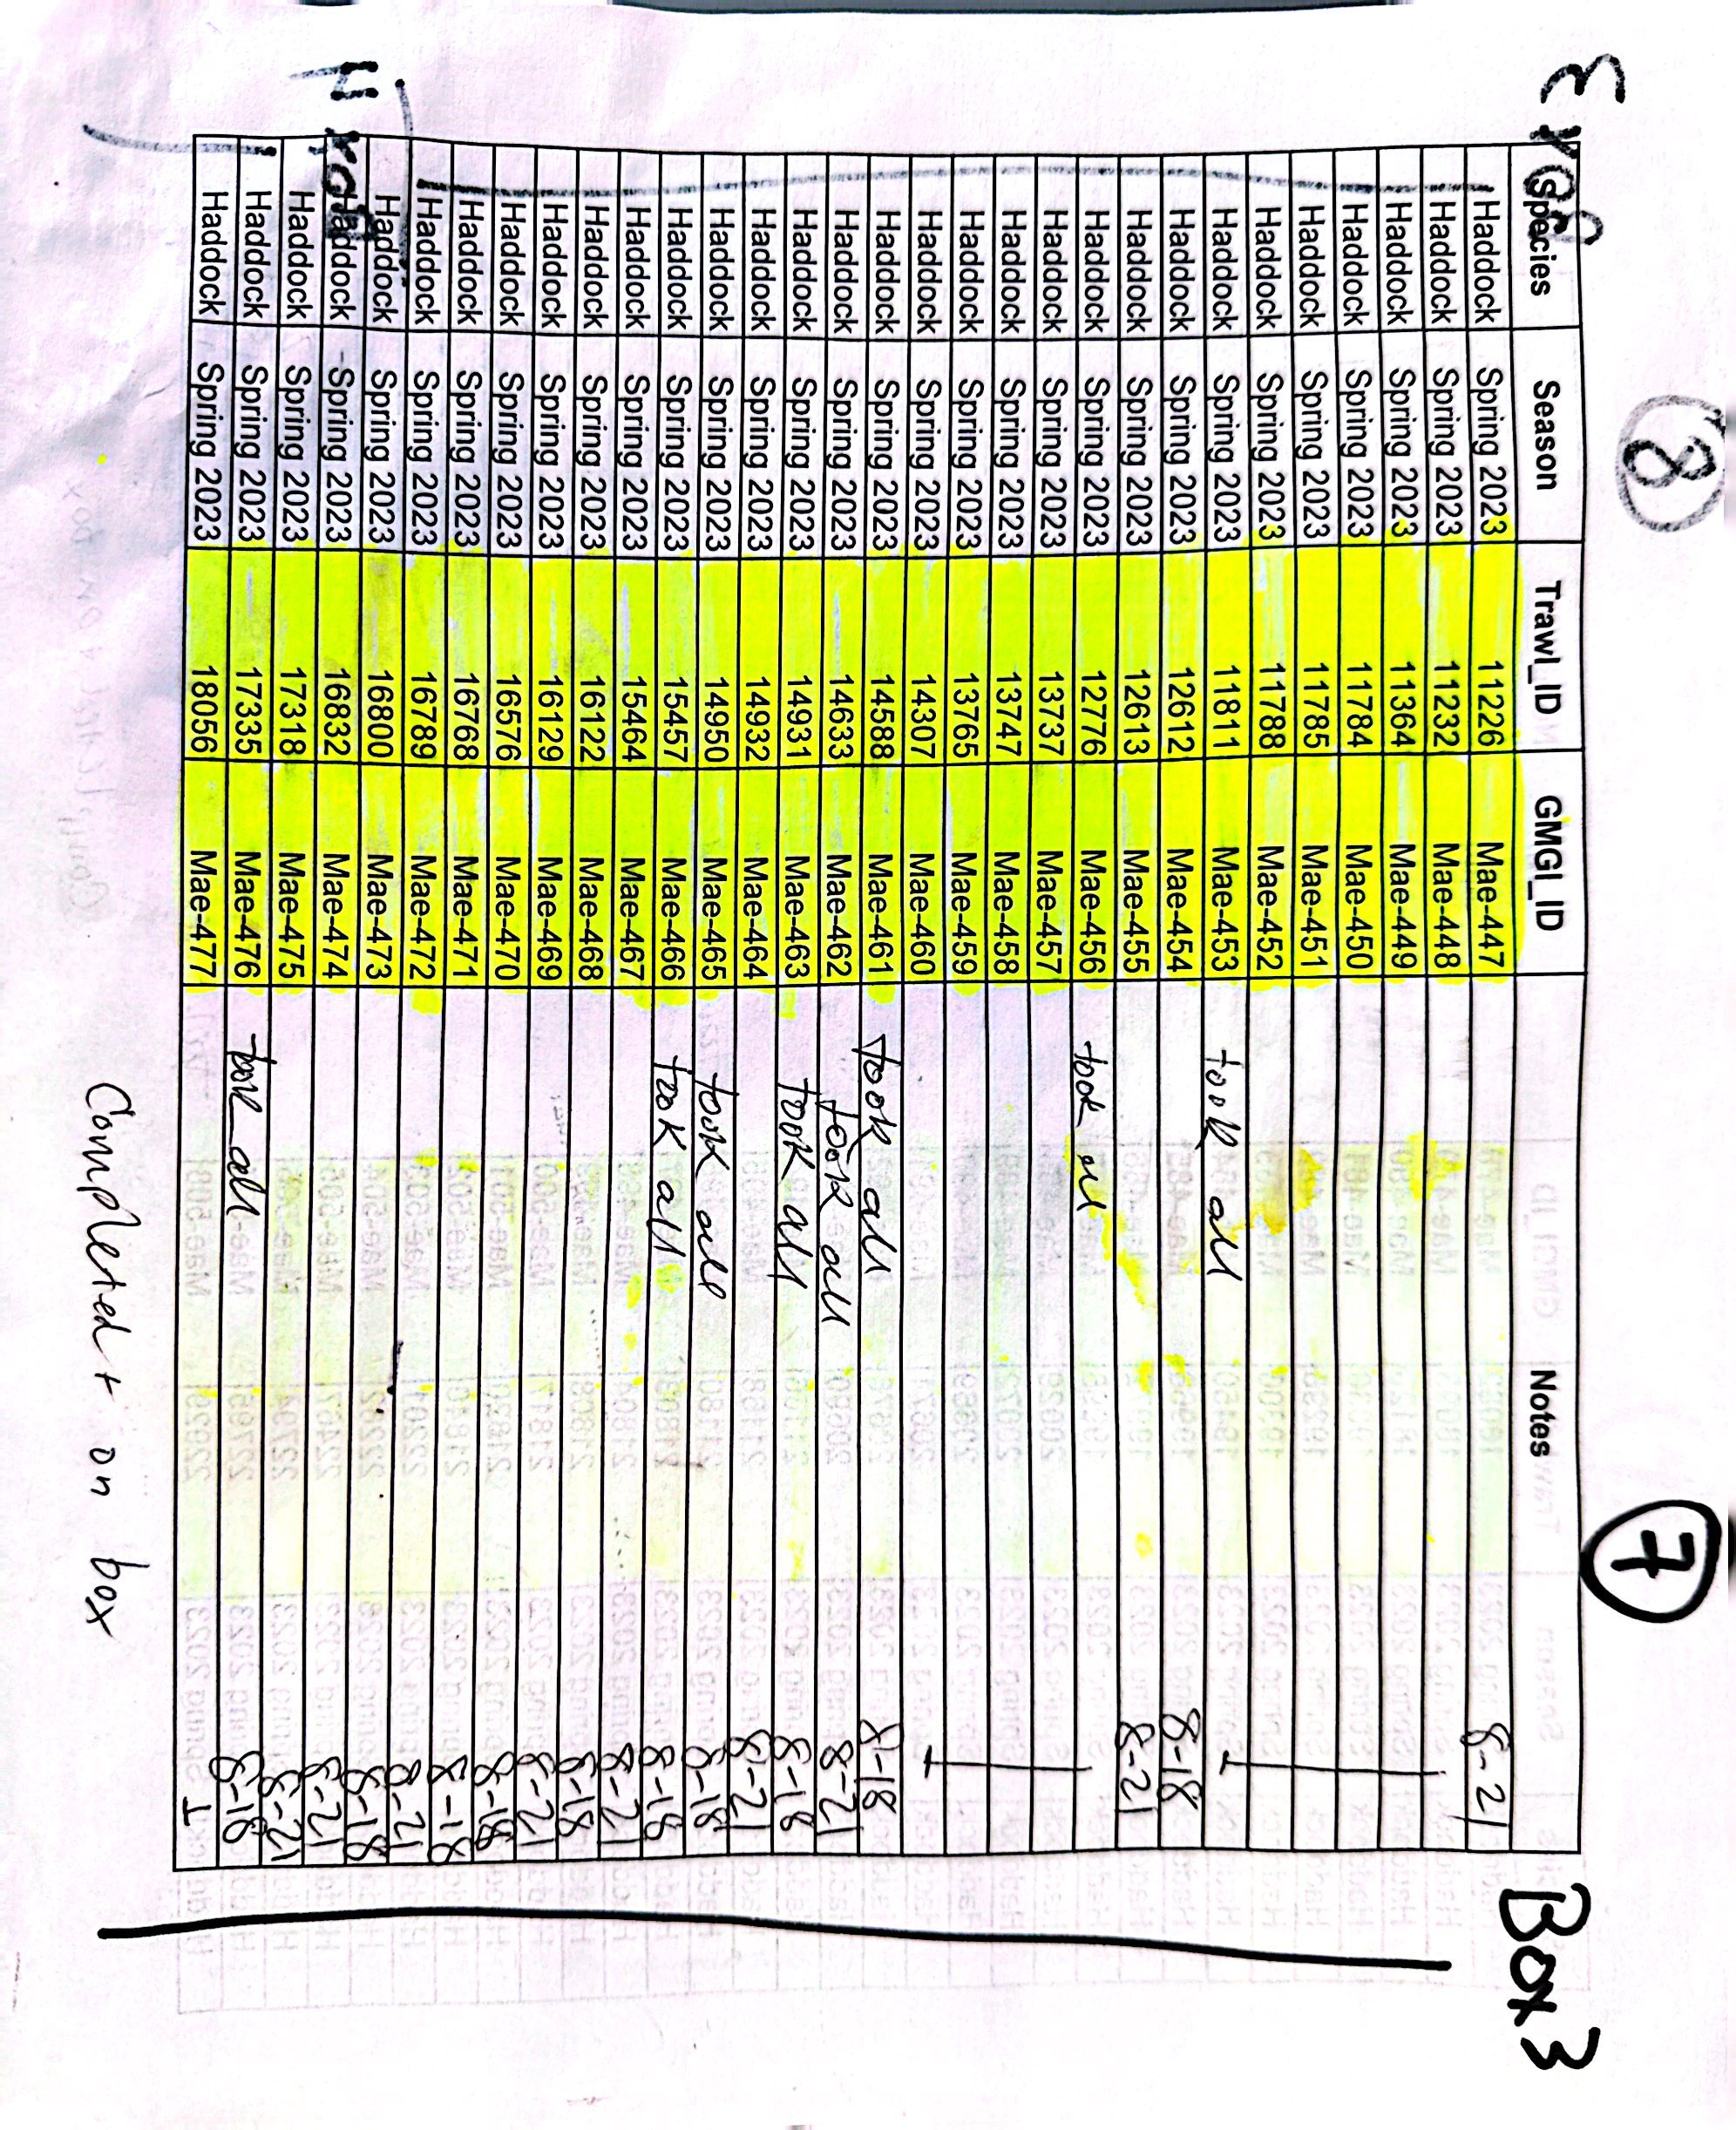 8 7
Box 3
Species Season Trawl_ID GMGI_ID Notes
Haddock Spring 2023 11226 Mae-447 8-21
Haddock Spring 2023 11232 Mae-448
Haddock Spring 2023 11364 Mae-449
Haddock Spring 2023 11784 Mae-450
Haddock Spring 2023 11785 Mae-451
Haddock Spring 2023 11788 Mae-452
Haddock Spring 2023 11811 Mae-453 took all
Haddock Spring 2023 12612 Mae-454 8-18
Haddock Spring 2023 12613 Mae-455 8-21
Haddock Spring 2023 12776 Mae-456 took all
Haddock Spring 2023 13737 Mae-457
Haddock Spring 2023 13747 Mae-458
Haddock Spring 2023 13765 Mae-459
Haddock Spring 2023 14307 Mae-460
Haddock Spring 2023 14588 Mae-461 took all 8-18
Haddock Spring 2023 14633 Mae-462 took all 8-21
Haddock Spring 2023 14931 Mae-463 took all 8-18
Haddock Spring 2023 14932 Mae-464 8-21
Haddock Spring 2023 14950 Mae-465 took all 8-18
Haddock Spring 2023 15457 Mae-466 took all 8-18
Haddock Spring 2023 15464 Mae-467 8-21
Haddock Spring 2023 16122 Mae-468 8-18
Haddock Spring 2023 16129 Mae-469 8-21
Haddock Spring 2023 16576 Mae-470 8-18
Haddock Spring 2023 16768 Mae-471 8-18
Haddock Spring 2023 16789 Mae-472 8-21
Haddock Spring 2023 16800 Mae-473 8-18
Haddock Spring 2023 16832 Mae-474 8-21
Haddock Spring 2023 17318 Mae-475 8-21
Haddock Spring 2023 17335 Mae-476 took all 8-18
Haddock Spring 2023 18056 Mae-477
Completed + on box